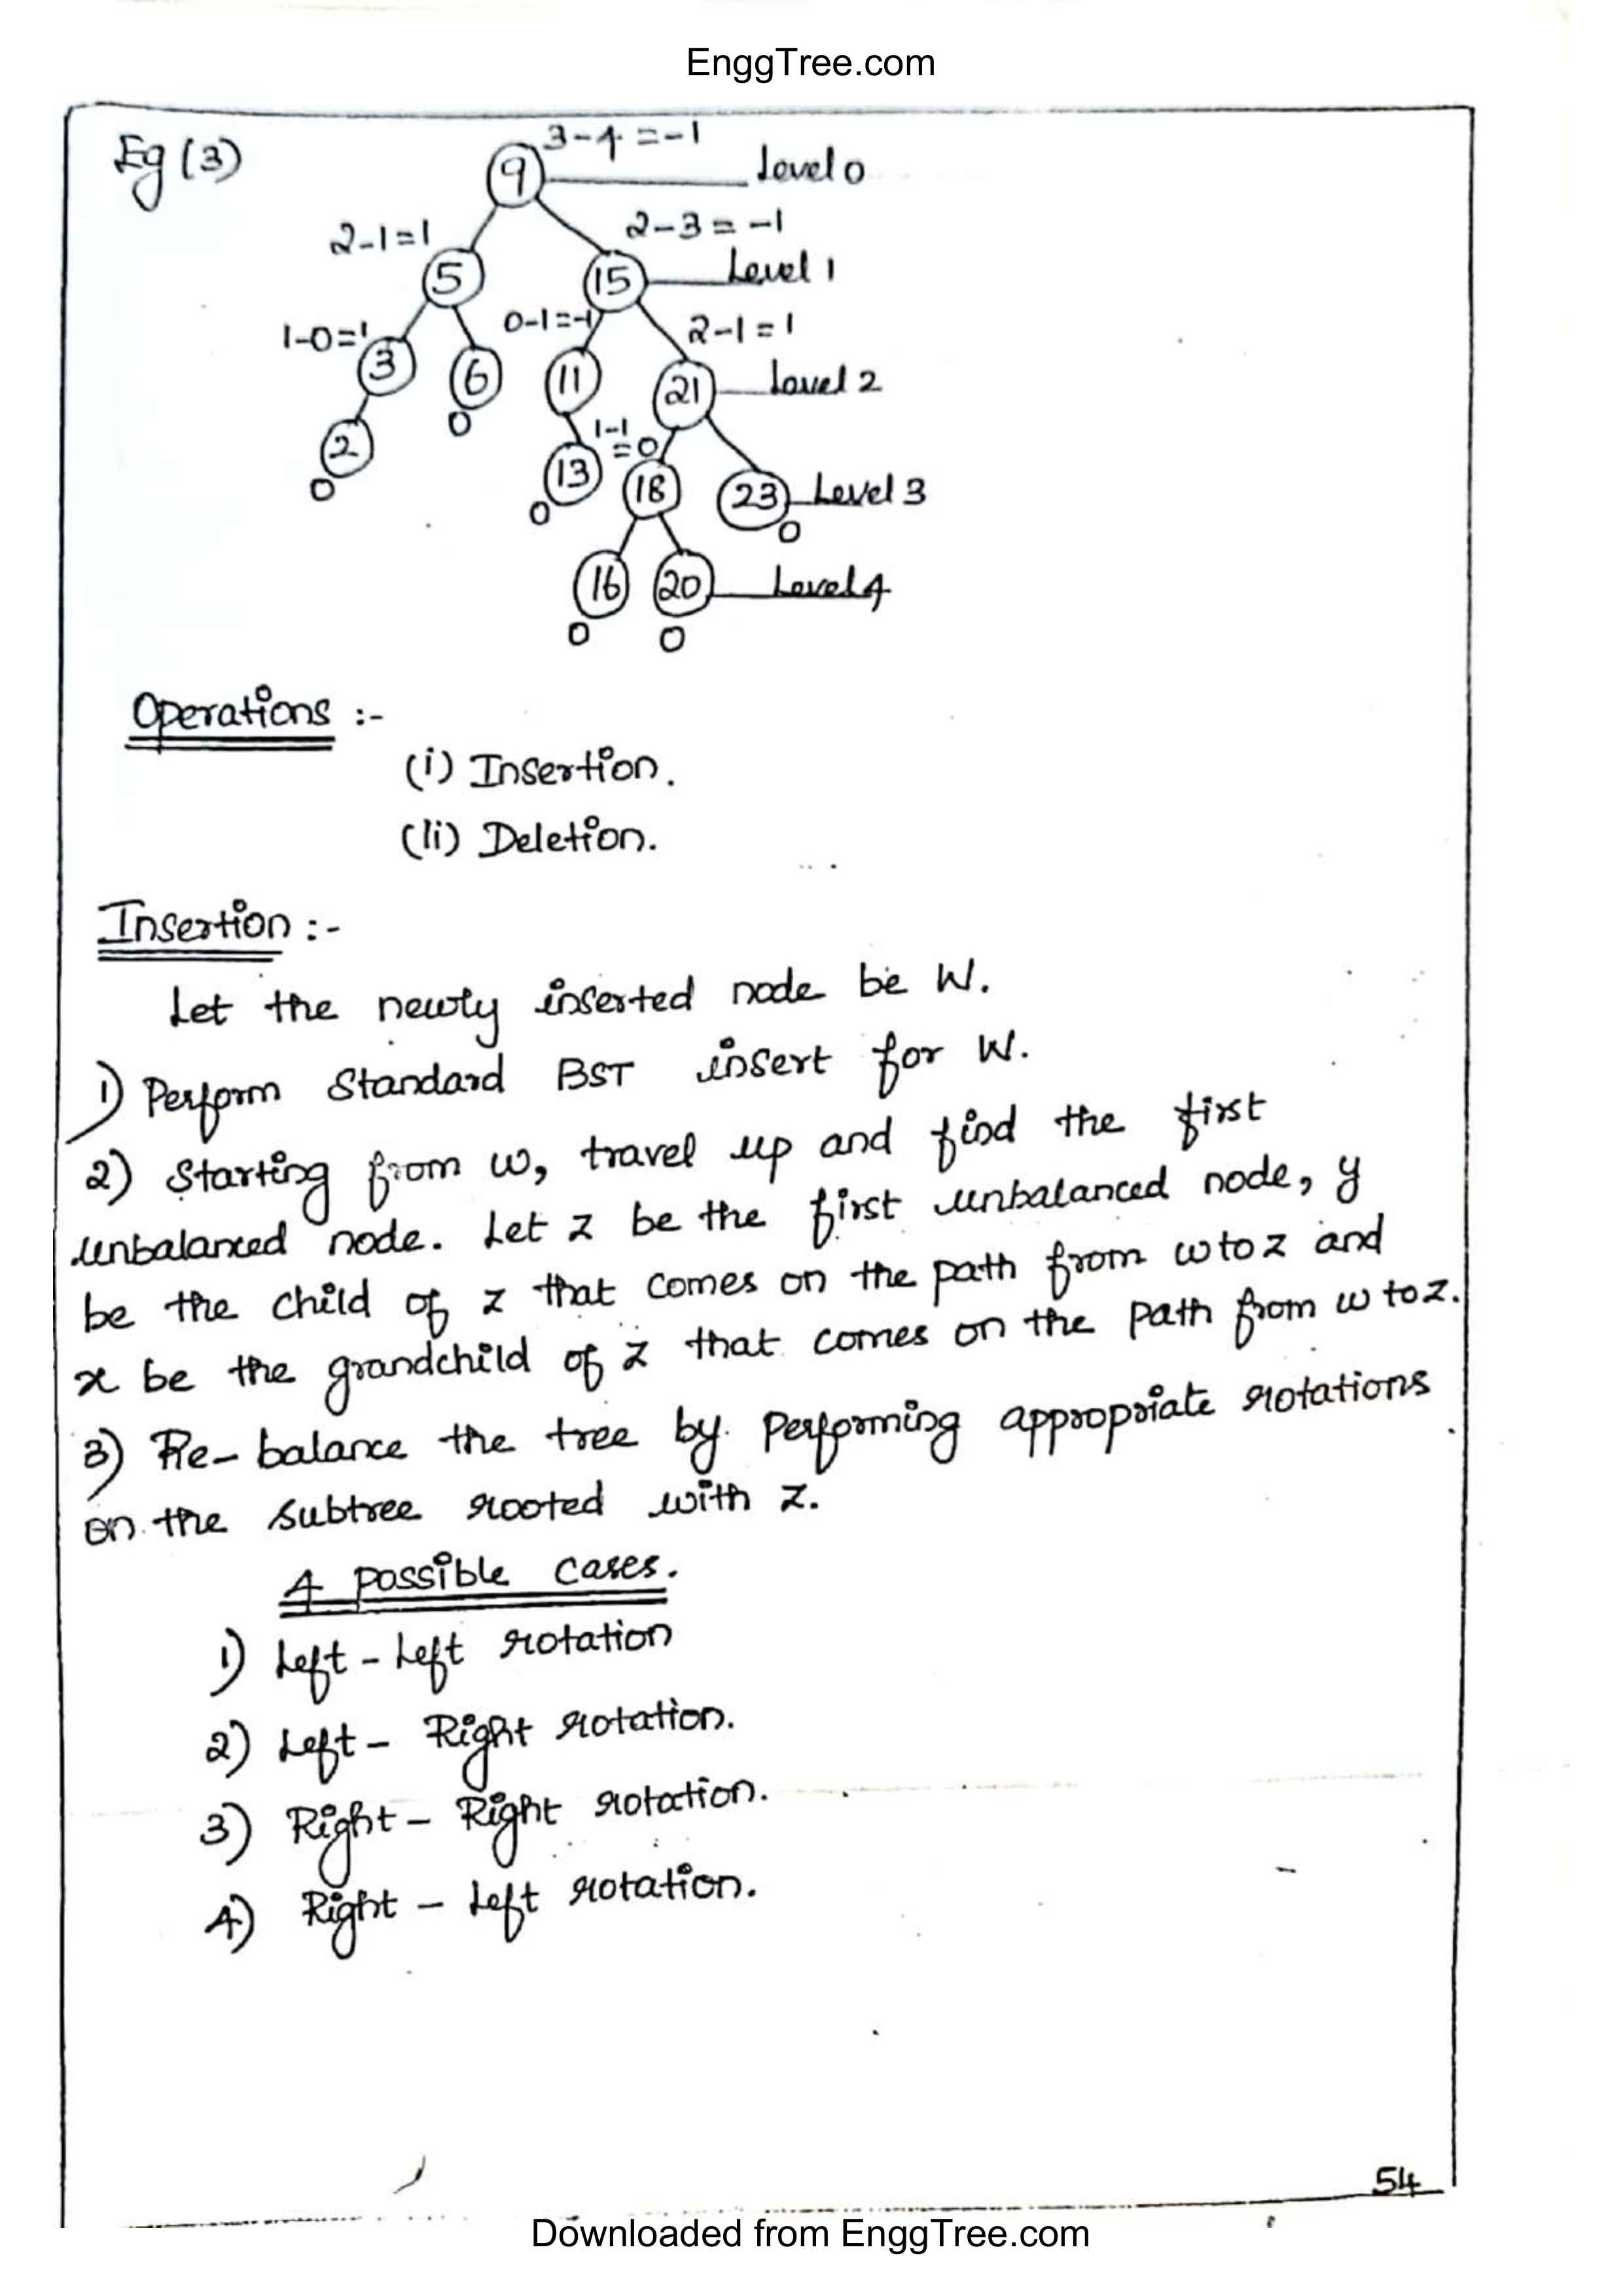 EnggTree.com
Eg (3)
3-4 = -1
9
Level 0
2-1=1
2-3 = -1
5
15
Level 1
1-0=1
0-1=-1
2-1=1
3
6
11
21
Level 2
0
1-1
=0
2
13
18
23
Level 3
0
0
0
16
20
Level 4
0
0
Operations :-
(i) Insertion.
(ii) Deletion.
Insertion :-
Let the newly inserted node be W.
1) Perform Standard BST insert for W.
2) Starting from w, travel up and find the first
unbalanced node. Let z be the first unbalanced node, y
be the child of z that comes on the path from w to z and
x be the grandchild of z that comes on the path from w to z.
3) Re-balance the tree by performing appropriate rotations
on the subtree rooted with z.
4 possible cases.
1) Left - Left rotation
2) Left - Right rotation.
3) Right - Right rotation.
4) Right - Left rotation.
54
Downloaded from EnggTree.com